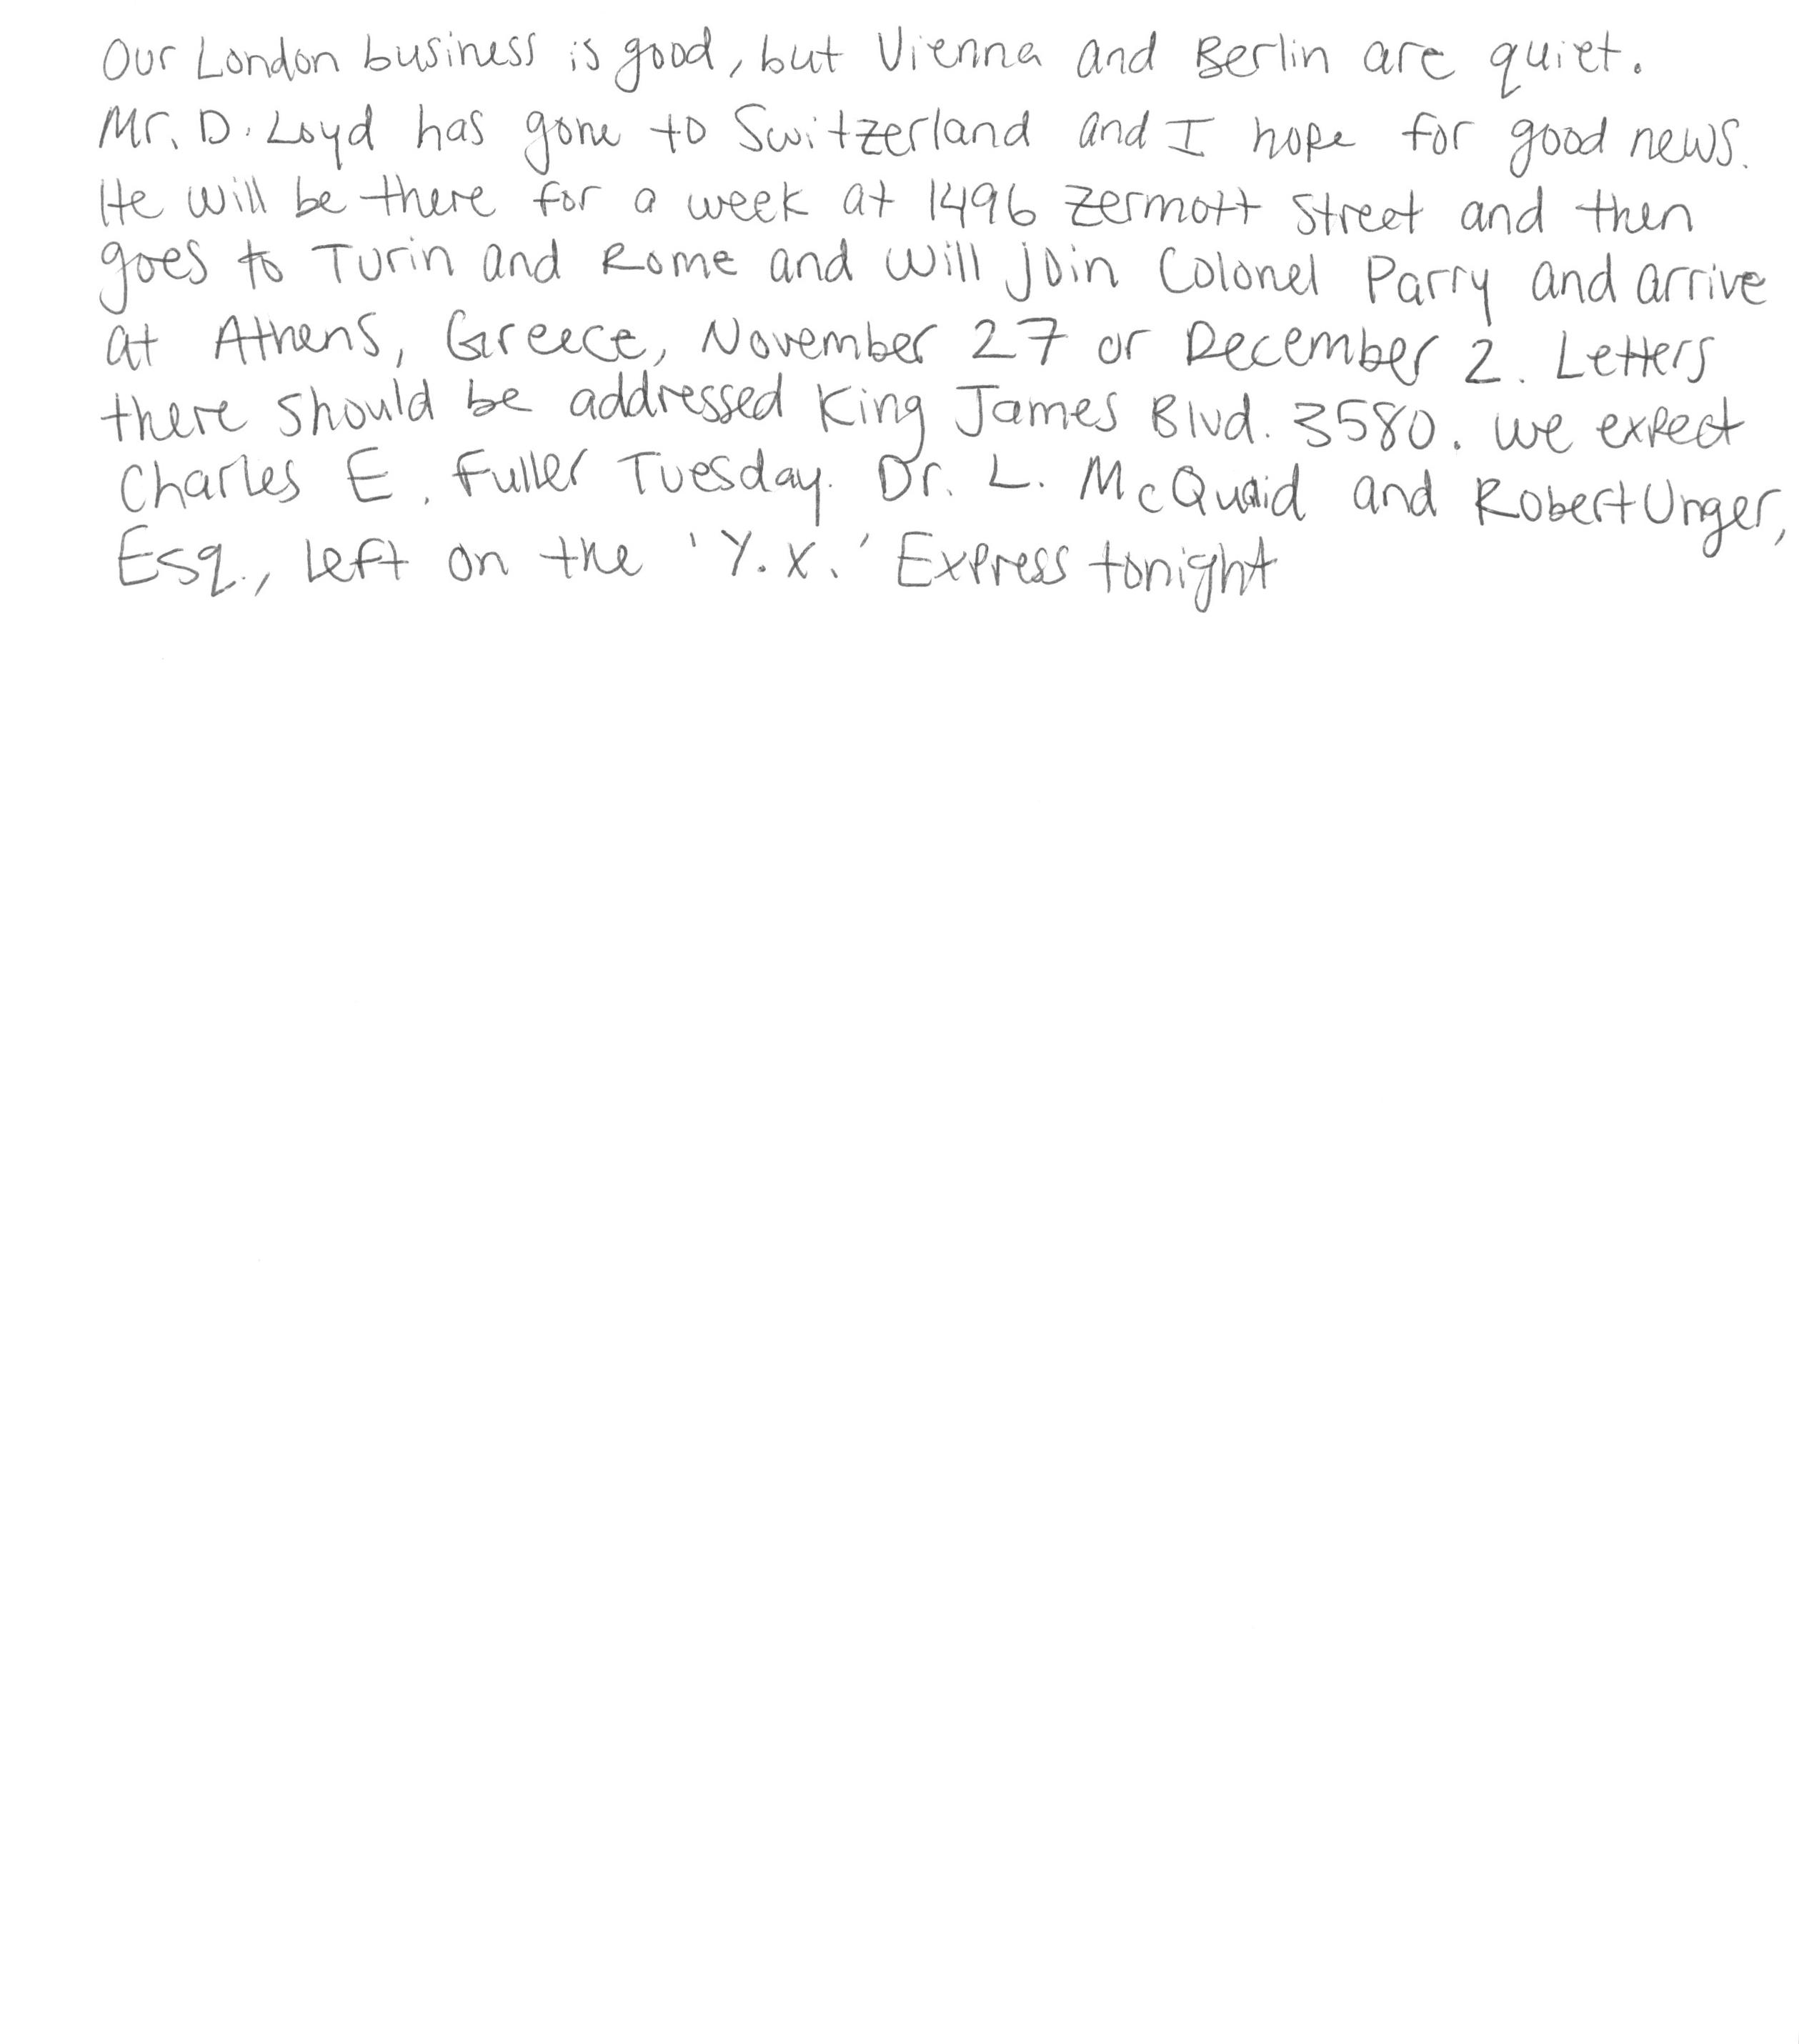 Our London business is good, but Vienna and Berlin are quiet.
Mr. D. Loyd has gone to Switzerland and I hope for good news.
He will be there for a week at 1496 Zermott Street and then
goes to Turin and Rome and will join Colonel Parry and arrive
at Athens, Greece, November 27 or December 2. Letters
there should be addressed King James Blvd. 3580. We expect
Charles E. Fuller Tuesday. Dr. L. McQuaid and Robert Unger,
Esq., left on the 'Y.X.' Express tonight